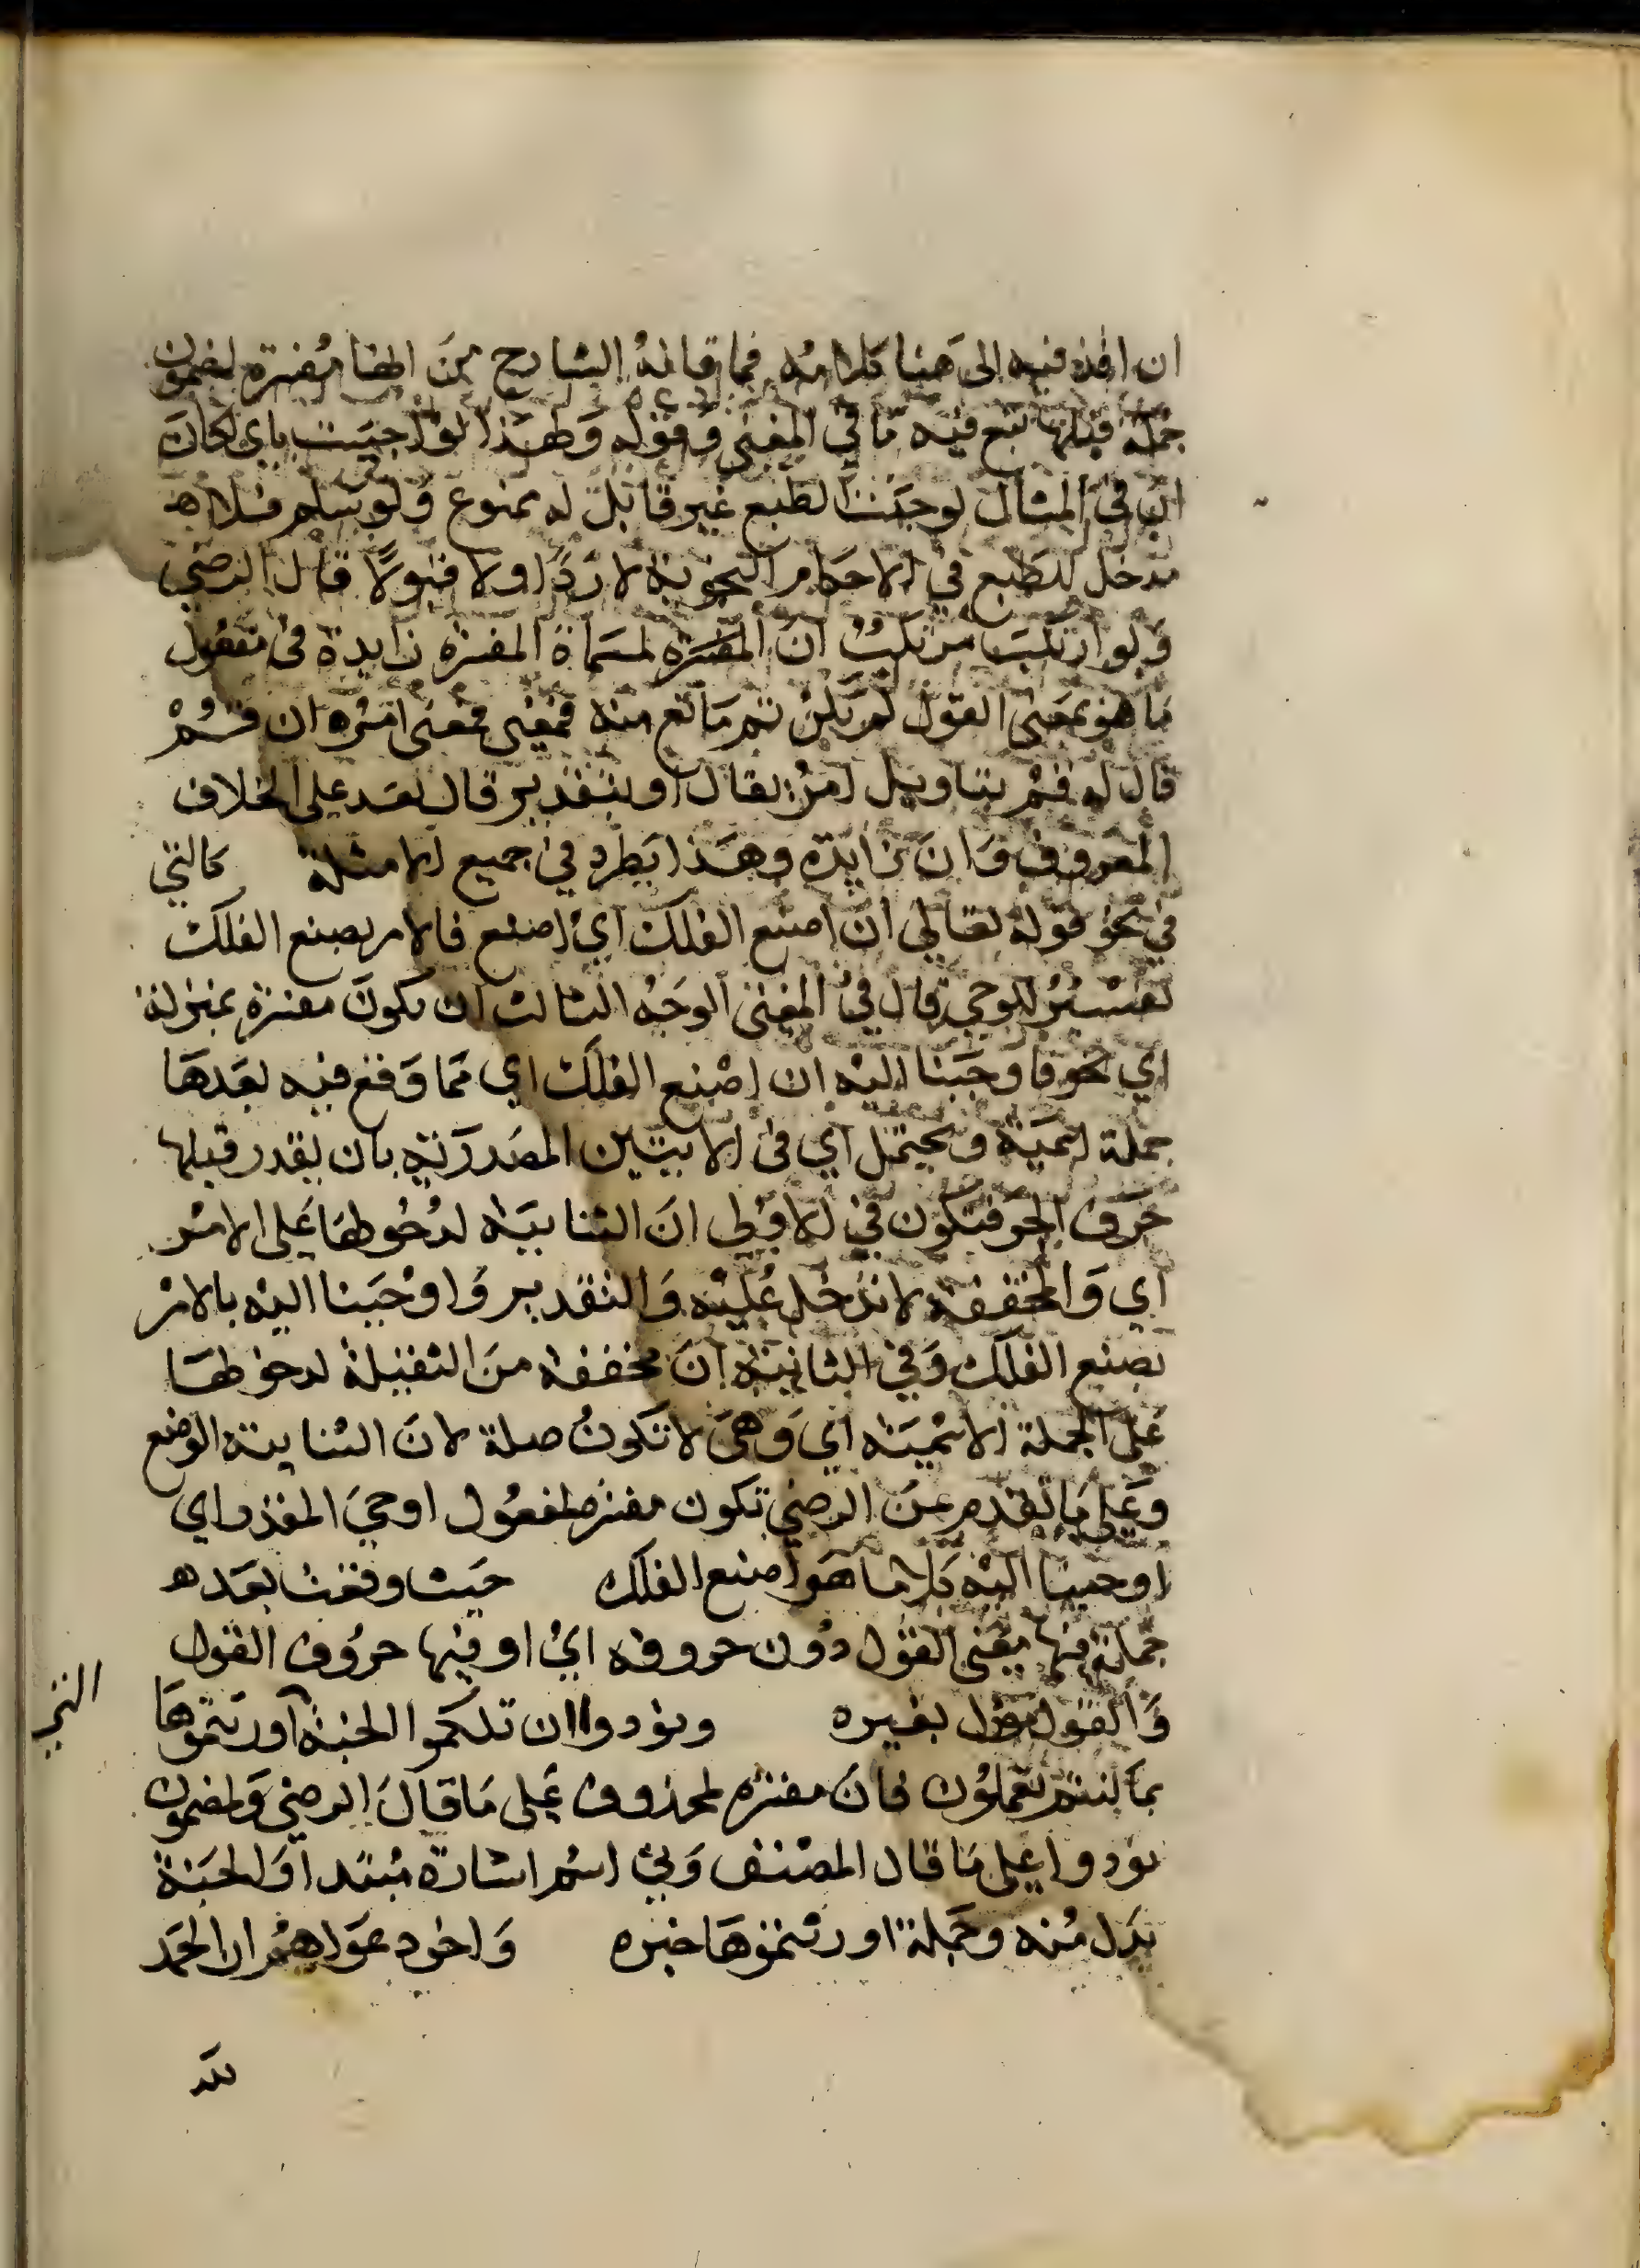 ان اقذفيه الى هنا كلامه فما قاله الشارح من انها مفسرة لمضمون
جملة قبلها تبع فيه ما في المغني وقوله ولهذا لو جيت باي لكان
ان في المثال لوجدت الطبع غير قابل له ممنوع ولو سلم فلا
مدخل للطبع في الاحكام النحوية لا ردا ولا قبولا قال الرضي
ولو ارتكب مرتكب ان المفسرة لمسماة المفسرة زايدة في مفعول
ما هو بمعنى القول لم يكن ثم مانع منه فمعنى امره ان قم
قال له قم بتاويل امر بقال او بتقدير قال بعد على الخلاف
المعروف وان زايدة وهذا يطرد في جميع الامثلة كالتي
في نحو قوله تعالى ان اصنع الفلك اي اصنع فالامر بصنع الفلك
تفسير للوحي قال في المغني الوجه الثالث ان تكون مفسرة بمنزلة
اي نحو فاوحينا اليه ان اصنع الفلك اي مما وقع فيه بعدها
جملة اسمية ويحتمل اي في الايتين المصدرية بان يقدر قبلها
حرف الجر فتكون في الاولى ان الثنايية لدخولها على الامر
اي والمخففة لا تدخل عليه والتقدير واوحينا اليه بالامر
بصنع الفلك وفي الثانية ان مخففة من الثقيلة لدخولها
على الجملة الاسمية اي وهي لا تكون صلة لان الثنايية الوضع
وعلى ما تقدم عن الرضي تكون مفسرة لمفعول اوحي المقدر اي
اوحينا اليه كلاما هو اصنع الفلك حيث وقعت بعد
جملة فيها معنى القول دون حروفه اي او فيها حروف القول
والقول مؤل بغيره ونودوا ان تلكموا الجنة اورثتموها
بما كنتم تعملون فان مفسرة لمحذوف على ما قال الرضي ولمضمون
نودوا على ما قال المصنف وتي اسم اشارة مبتدا والجنة
بدل منه وجملة اورثتموها خبره واخر دعواهم ان الحمد
لله